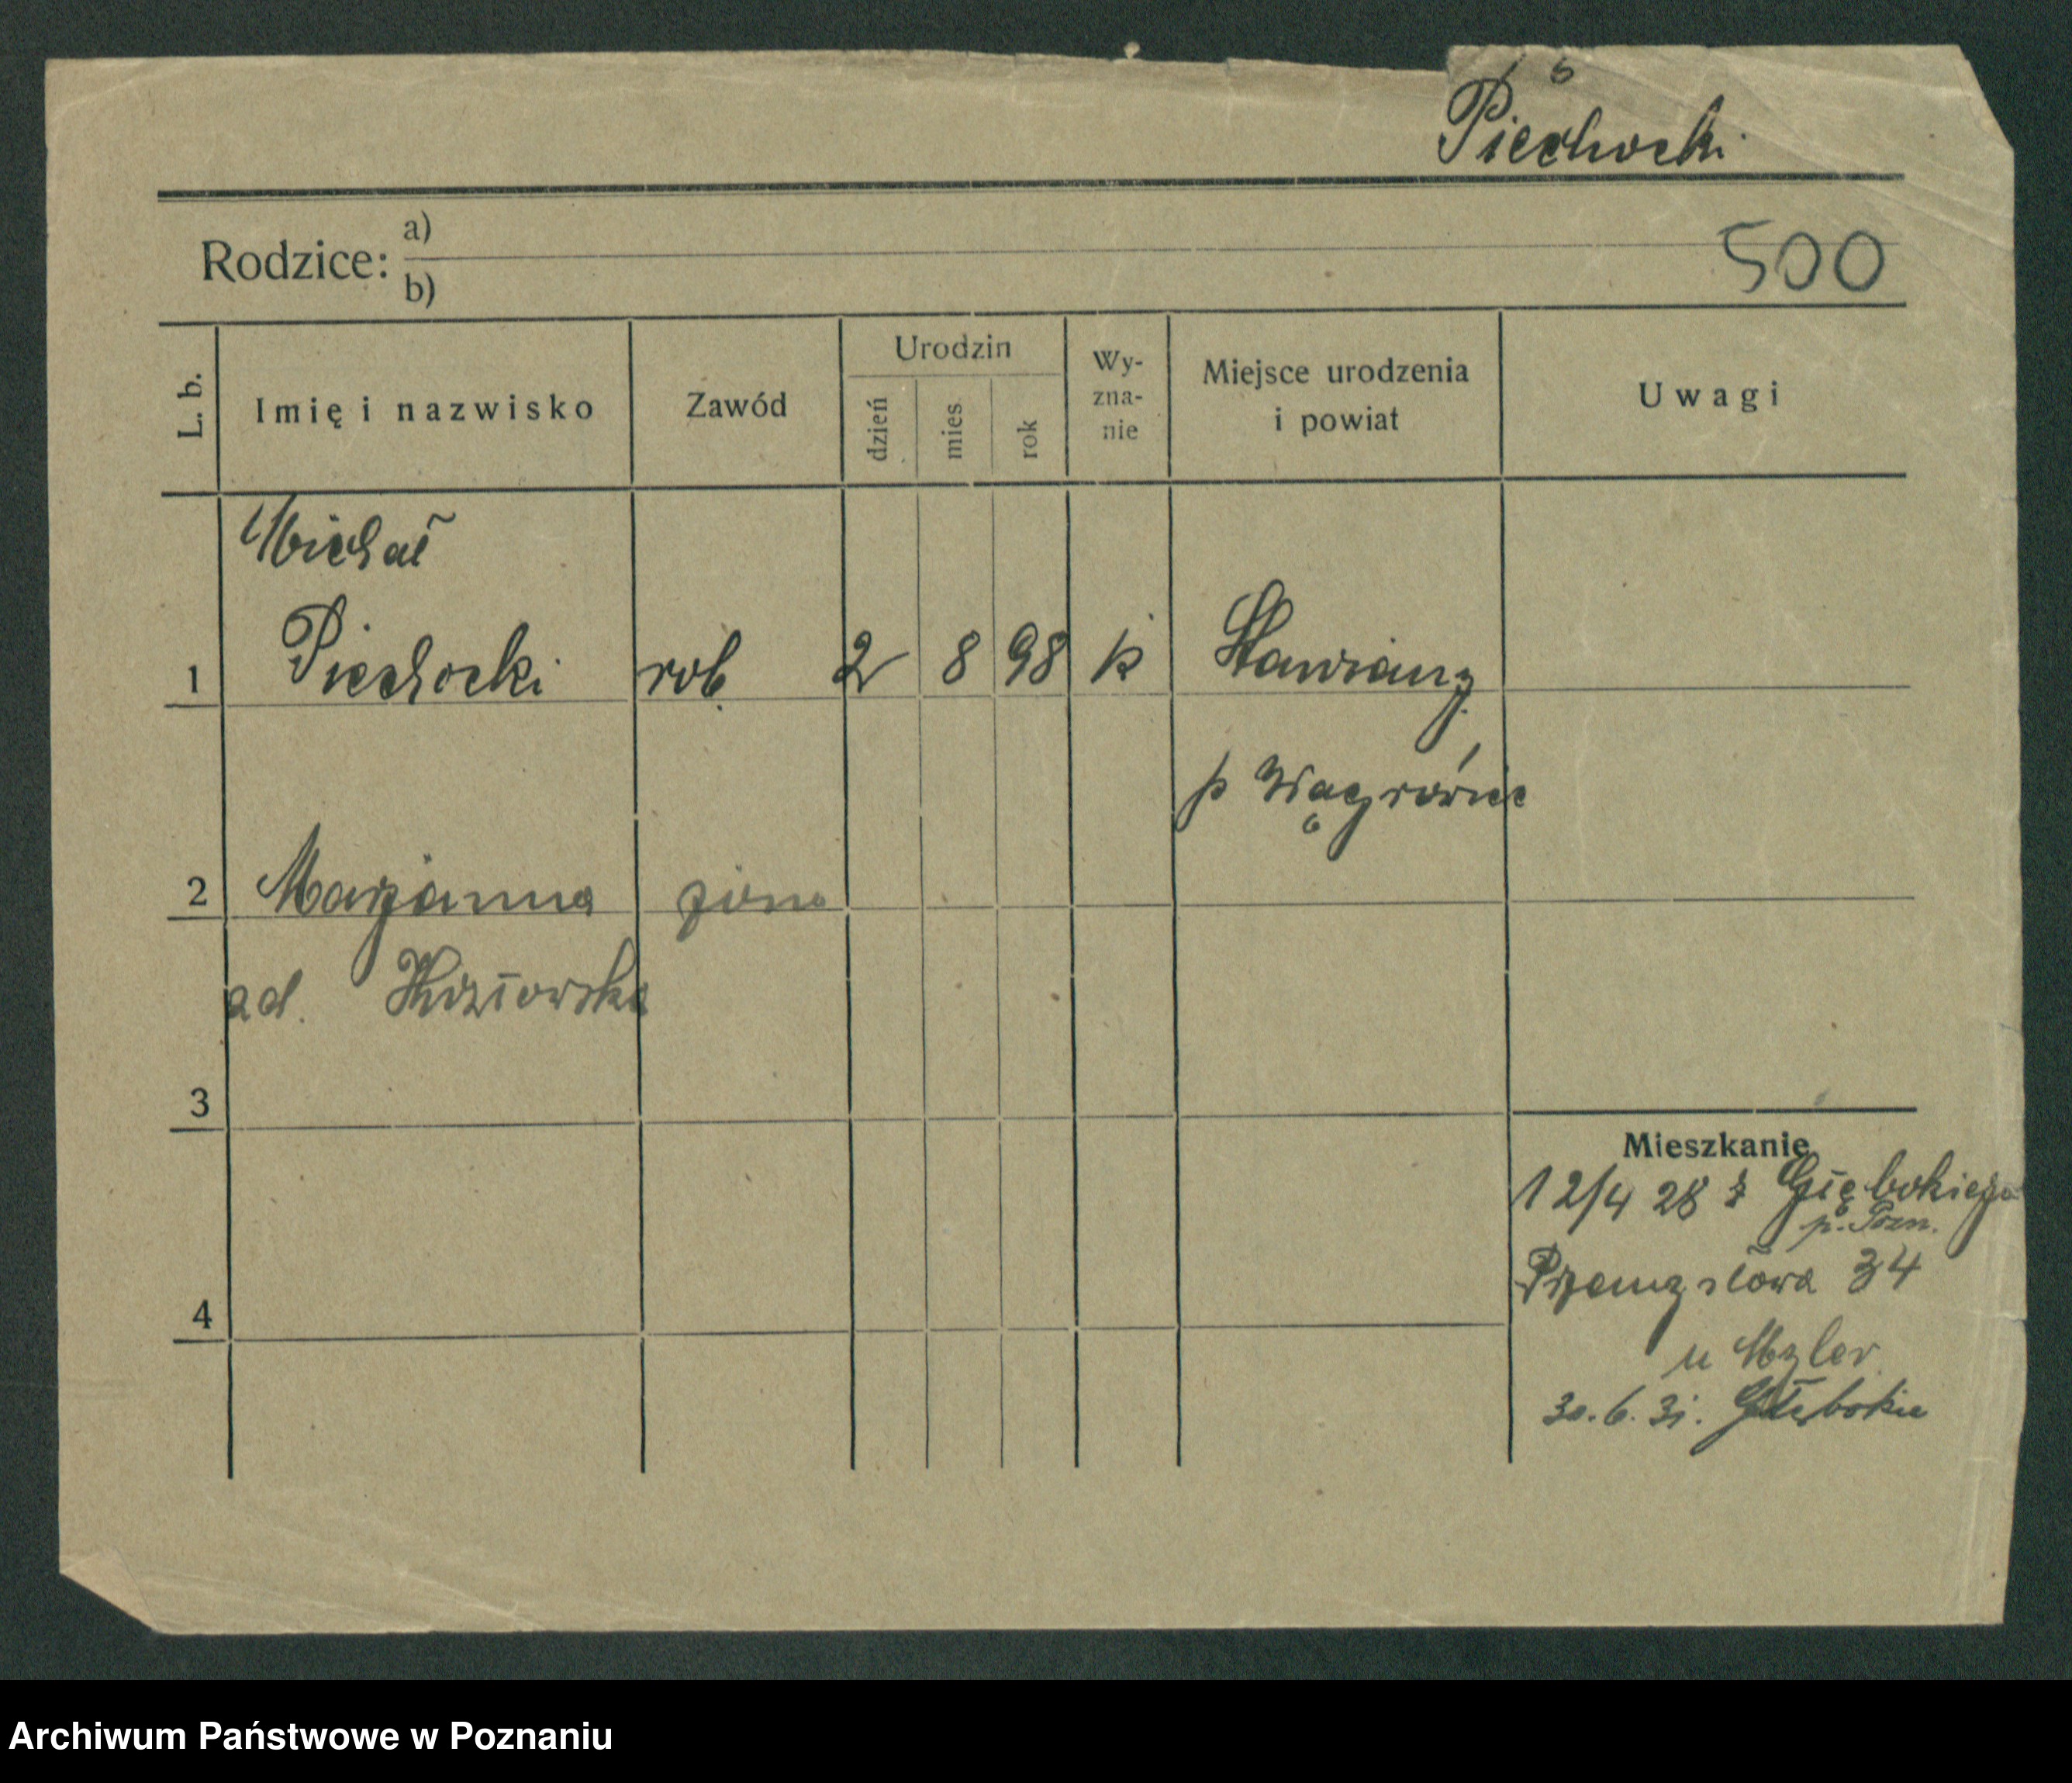 Piechocki
Rodzice: a)
b)
500
L. b.
Imię i nazwisko
Zawód
Urodzin
dzień
mies.
rok
Wy-
zna-
nie
Miejsce urodzenia
i powiat
Uwagi
Michał
1 Piechocki rob. 2 8 98 k Sławiany
p Wągrówiec
2 Marjanna żona
3
4
Mieszkanie
12/4 28 z Głębokiego
p. Pozn.
Przemysłowa 34
u
30.6.31. Głębokie
Archiwum Państwowe w Poznaniu